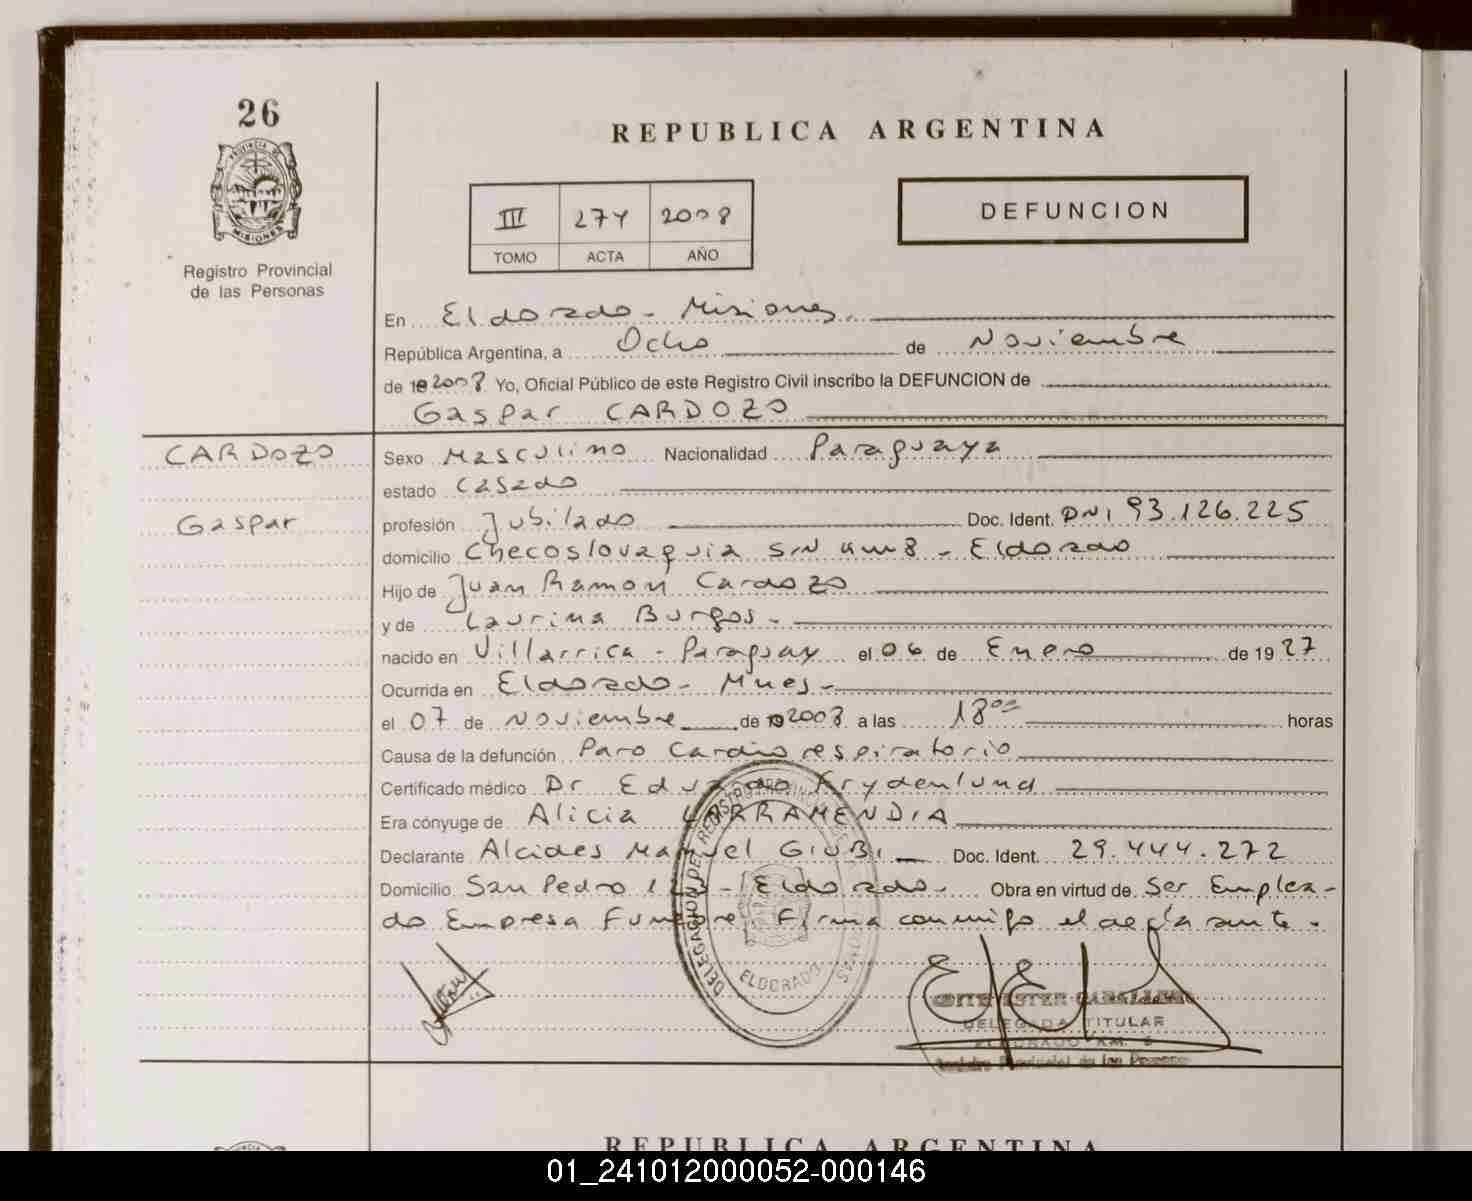 26
PROVINCIA DE
MISIONES
Registro Provincial
de las Personas
REPUBLICA ARGENTINA
III 274 2008
TOMO ACTA AÑO
DEFUNCION
En Eldorado - Misiones.
República Argentina, a Ocho de Noviembre
de 2008 Yo, Oficial Público de este Registro Civil inscribo la DEFUNCION de
Gaspar CARDOZO
CARDOZO
Gaspar
Sexo Masculino Nacionalidad Paraguaya
estado Casado
profesión Jubilado Doc. Ident. DNI 93.126.225
domicilio Checoslovaquia S/N Km 8 - Eldorado
Hijo de Juan Ramon Cardozo
y de Laurina Burgos -
nacido en Villarrica - Paraguay el 06 de Enero de 1927
Ocurrida en Eldorado - Mnes -
el 07 de Noviembre de 2008 a las 18 00 horas
Causa de la defunción Paro Cardiorespiratorio
Certificado médico Dr Eduardo Frydenlund
Era cónyuge de Alicia LARRAMENDIA
Declarante Alcides Manuel GIUBI Doc. Ident. 29.444.272
Domicilio San Pedro - Eldorado - Obra en virtud de Ser Emplea-
do Empresa Funebre Firma conmigo el declarante.
DELEGACION DEL REGISTRO PROVINCIAL DE LAS PERSONAS
ELDORADO
EDITH ESTER CABALLERO
DELEGADA TITULAR
ELDORADO KM.
Registro Provincial de las Personas
REPUBLICA ARGENTINA
01_241012000052-000146